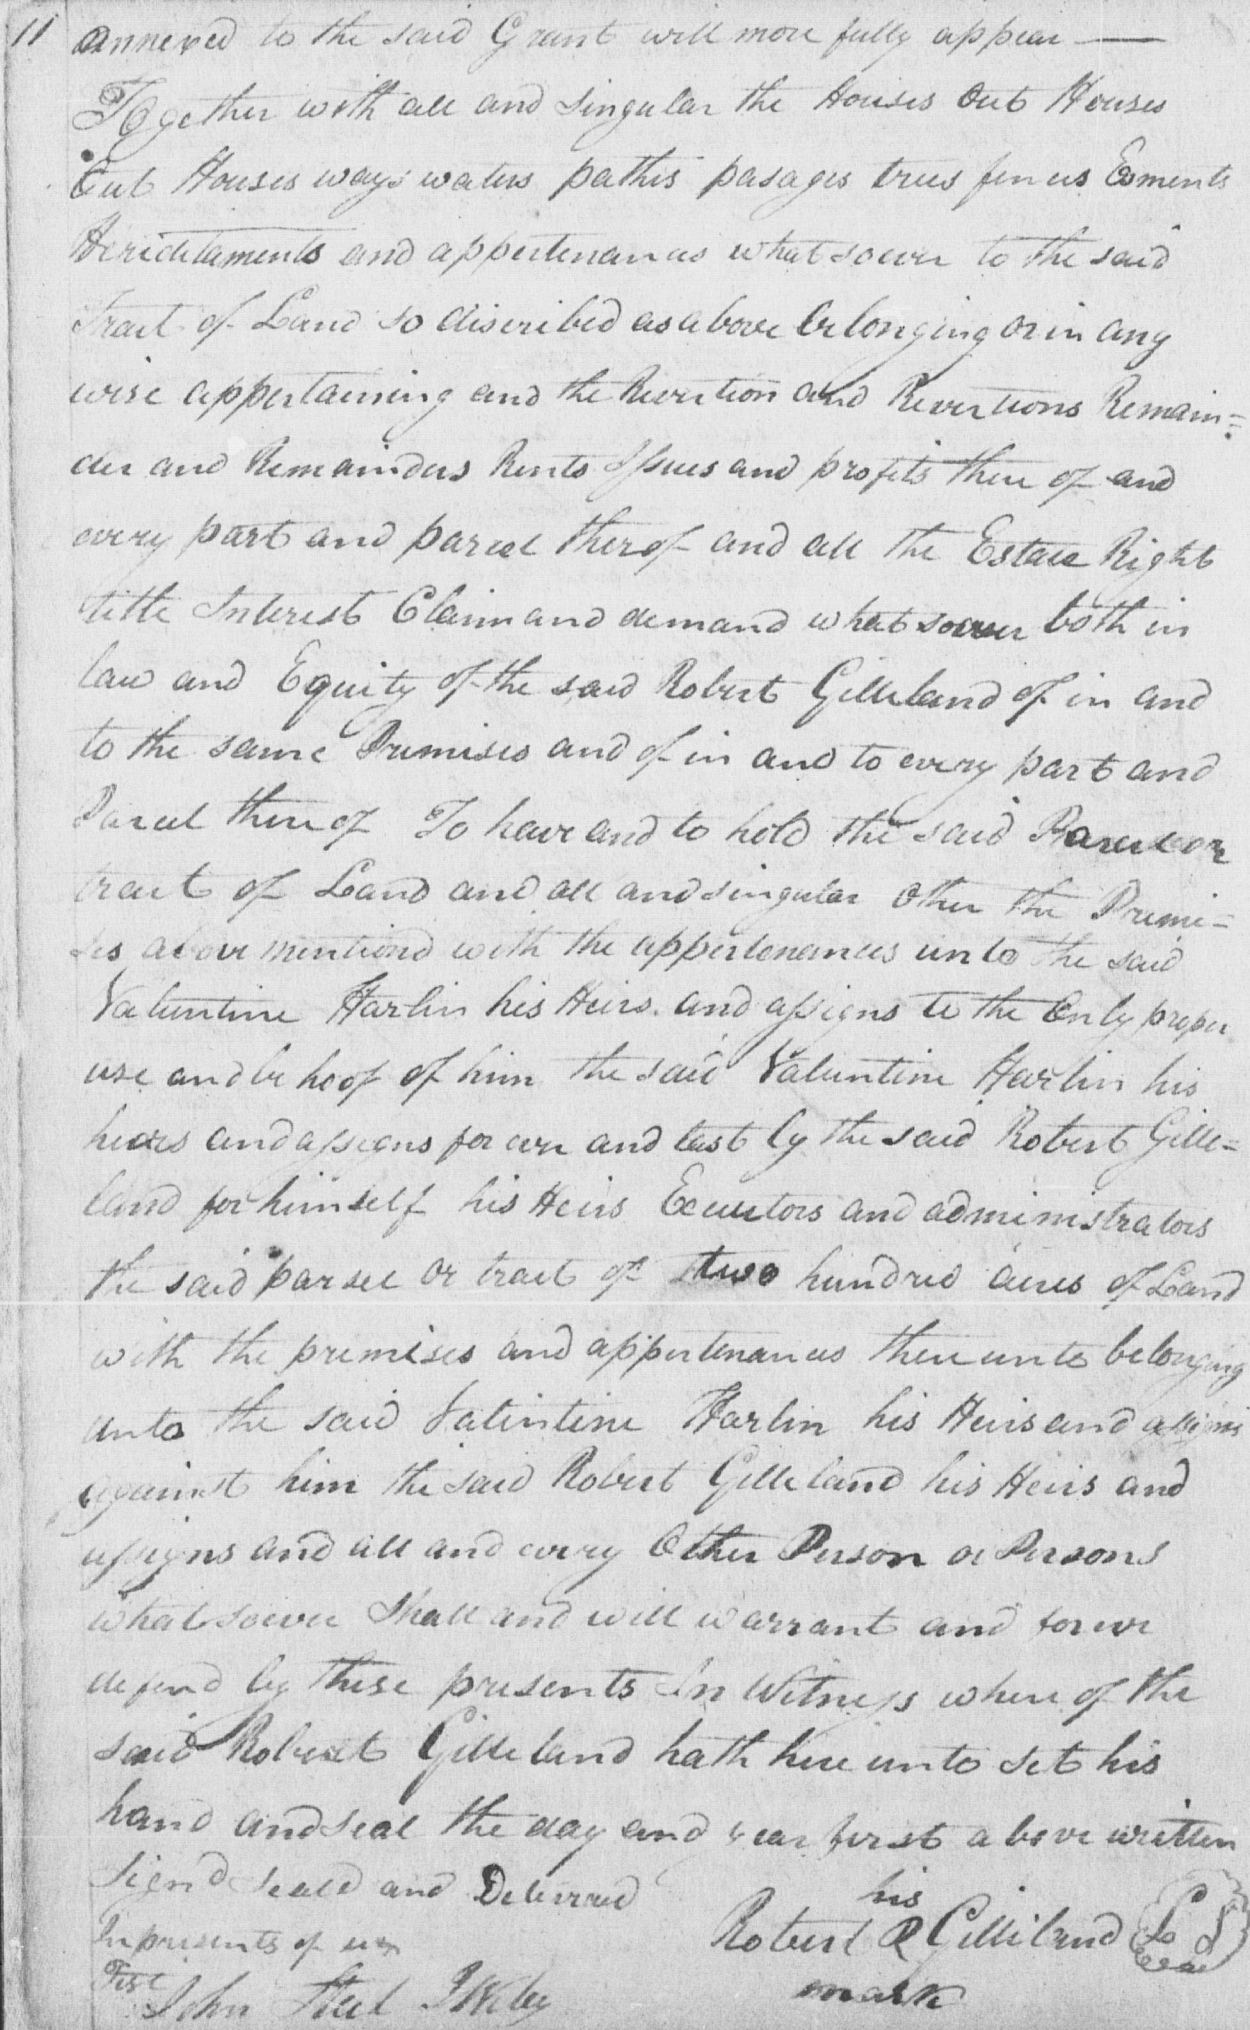 11 annexed to the said Grant will more fully appear —
Together with all and singular the Houses Out Houses
Out Houses ways waters pathis pasages trees fences Esments
Heriditaments and appertenances whatsoever to the said
Tract of Land so discribed as above belonging or in any
wise appertaining and the Revertion and Revertions Remain=
der and Remainders Rents Issues and profits there of and
every part and parcel therof and all the Estate Right
title Interest Claim and demand whatsoever both in
law and Equity of the said Robert Gilleland of in and
to the same Premises and of in and to every part and
Parcel there of To have and to hold the said Parcel or
tract of Land and all and singular other the Premi=
ses above mentiond with the appertenances unto the said
Valentine Harlin his Heirs and assigns to the Only proper
use and be hoof of him the said Valuntine Harlin his
heirs and assigns for ever and last by the said Robert Gille=
land for himself his Heirs Executors and administrators
the said parsel or tract of two hundred acres of Land
with the premises and appertenances there unto belonging
unto the said Valintine Harlin his Heirs and assigns
against him the said Robert Gilleland his Heirs and
assigns and all and every Other Person or Persons
whatsoever Shall and will warrant and forever
defend by these presents In Witness where of the
said Robert Gilleland hath here unto set his
hand and seal the day and year first above written
Signd Seald and Deliverd
his
In presents of us
Robert R Gilliland L S
mark
Test
John Steel